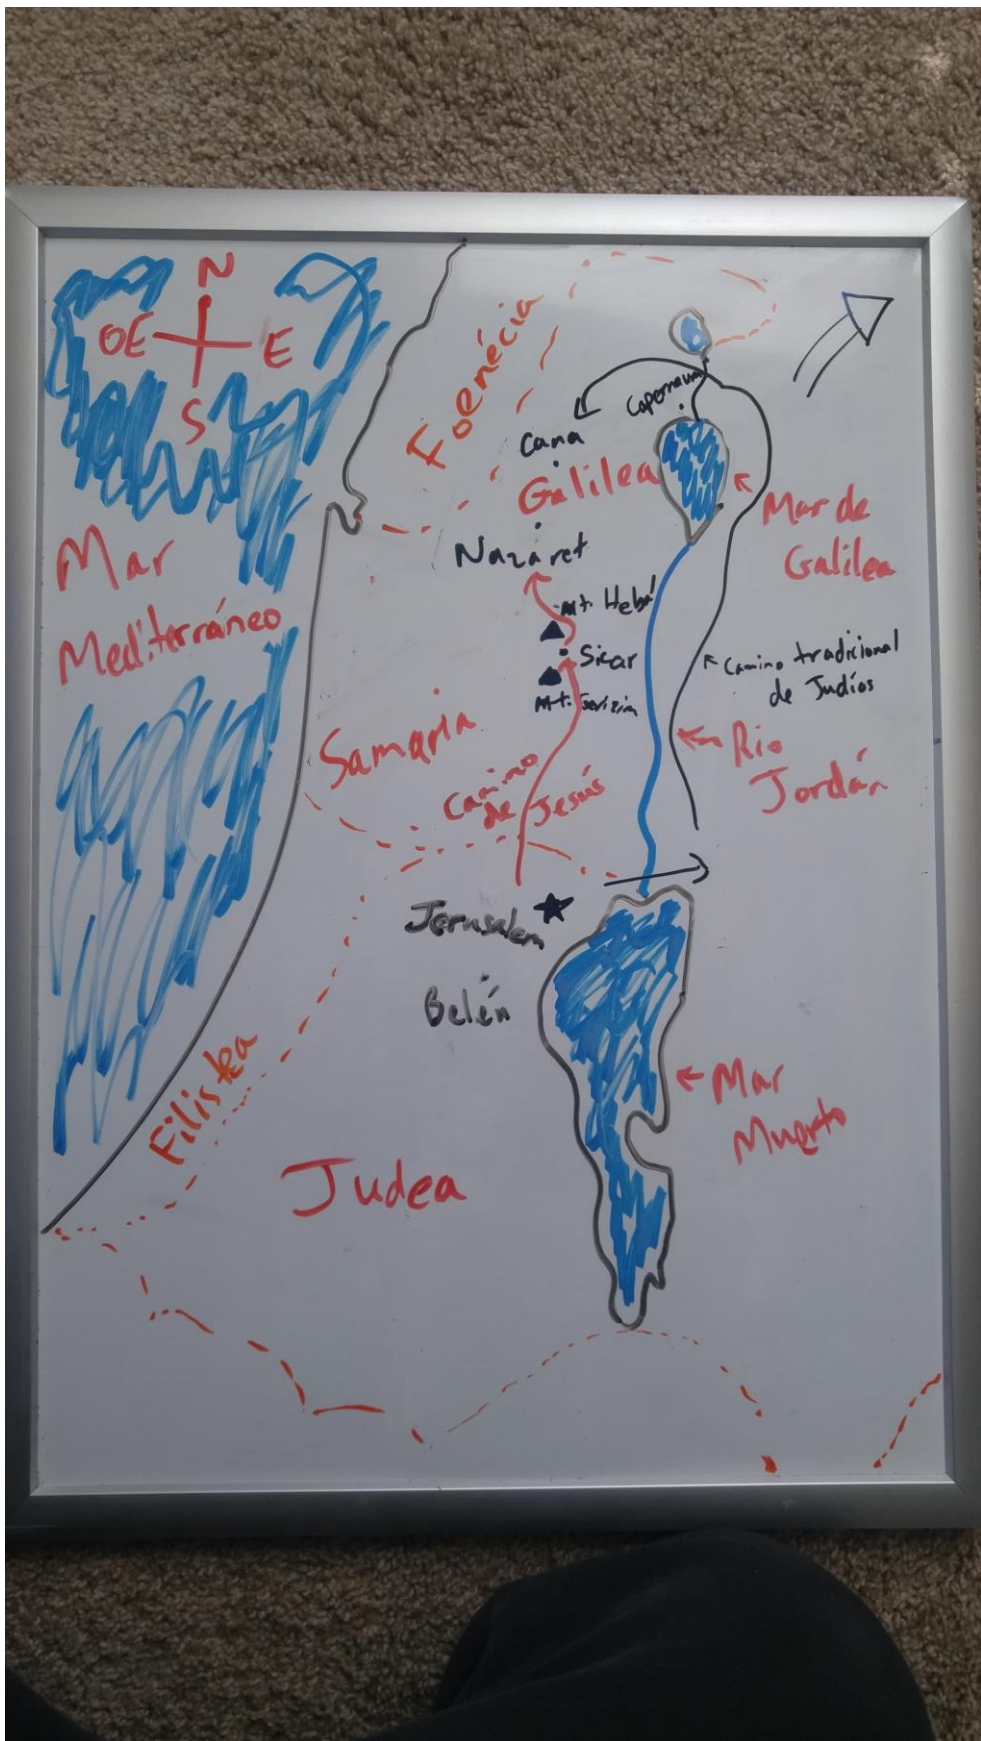 N
OE E
S
Foenécia
Capernaum
Cana
Galilea
Mar de
Galilea
Nazaret
Mar
Mediterráneo
Mt. Hebal
Sicar
Mt. Gerizim
Camino tradicional
de Judíos
Samaria
Camino
de Jesús
Rio
Jordán
Jerusalem
Belén
Filistea
Mar
Muerto
Judea